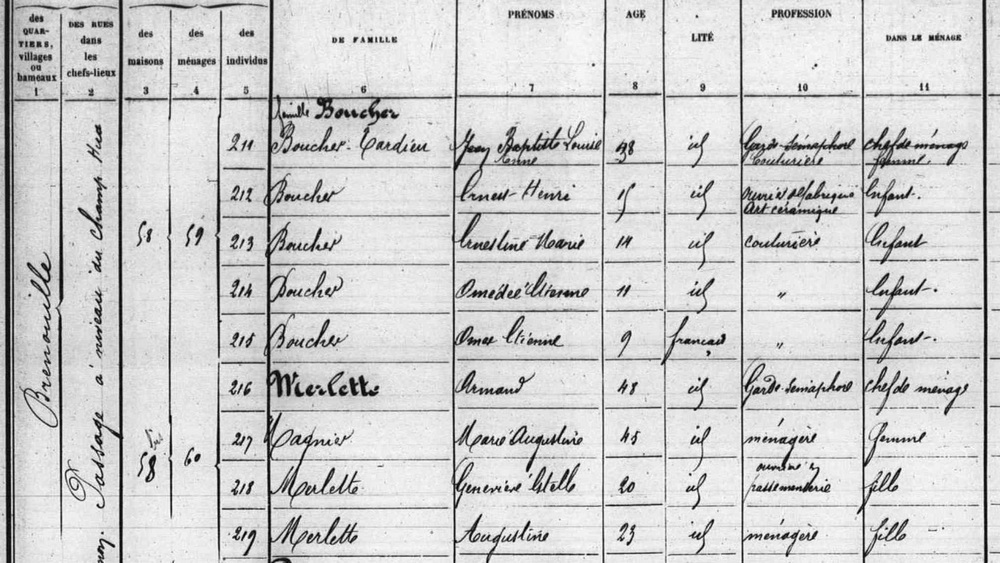 des
QUAR-
TIERS,
villages
ou
hameaux
1
DES RUES
dans
les
chefs-lieux
2
des
maisons
3
des
ménages
4
des
individus
5
DE FAMILLE
6
PRÉNOMS
7
AGE
8
LITÉ
9
PROFESSION
10
DANS LE MÉNAGE
11
Brenouille
Passage à niveau du Champ
famille Boucher
211 Boucher-Tardieu Jean Baptiste Louise 48 id Garde-sémaphore chef de ménage
Anne Couturière femme
212 Boucher Ernest Henri 15 id ouvrier de fabrique Enfant.
Art céramique
58 59
213 Boucher Ernestine Marie 14 id couturière Enfant
214 Boucher Omédée Etienne 11 id " Enfant.
215 Boucher Omer Etienne 9 français " Enfant.
216 Merlette Armand 48 id Garde-sémaphore chef de ménage
217 Magnier Marie Augustine 45 id ménagère femme
58 60
ouvrière en
218 Merlette Geneviève Estelle 20 id passementerie fille
219 Merlette Augustine 23 id ménagère fille